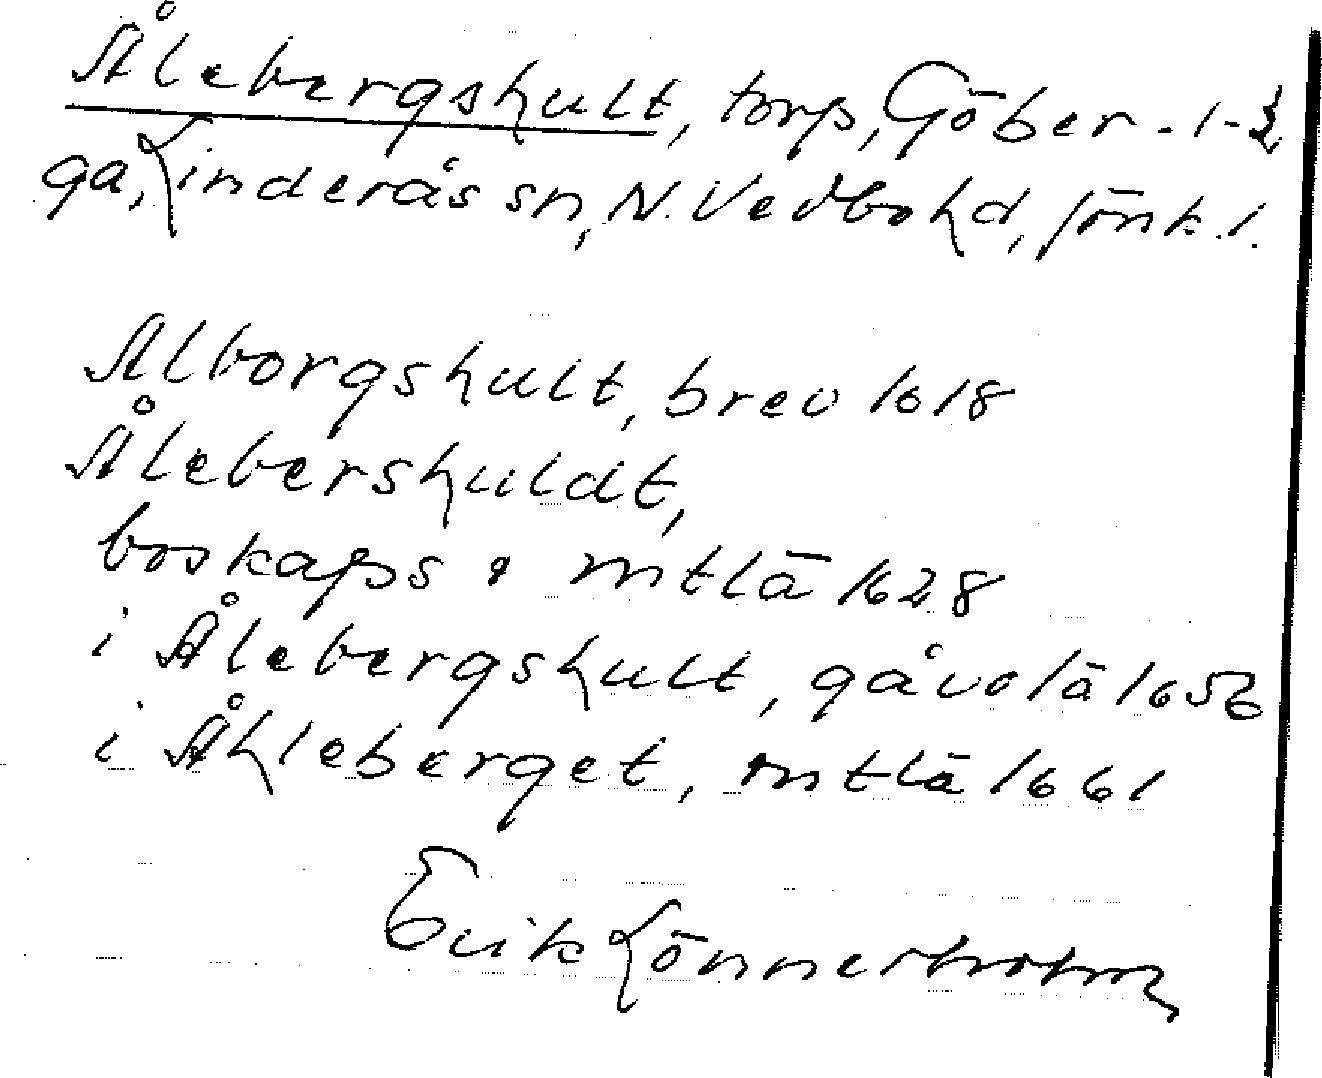 Ålebergshult, torp, Göber- 1-3
ga, Linderås sn, N. Vedbo hd, Jönk. l.
Alborgshult, brev 1618
Ålebershuldt,
boskaps o mtlä 1628
i Ålebergshult, gåvolä 1656
i Åhleberget, mtlä 1661
Erik Lönnerholm